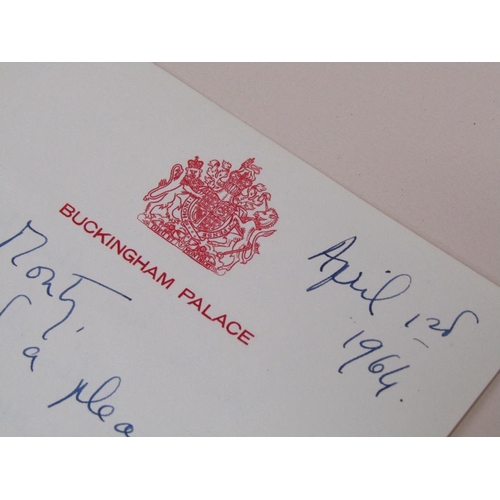 BUCKINGHAM PALACE
April 1st
1964.
Monty,
a plea